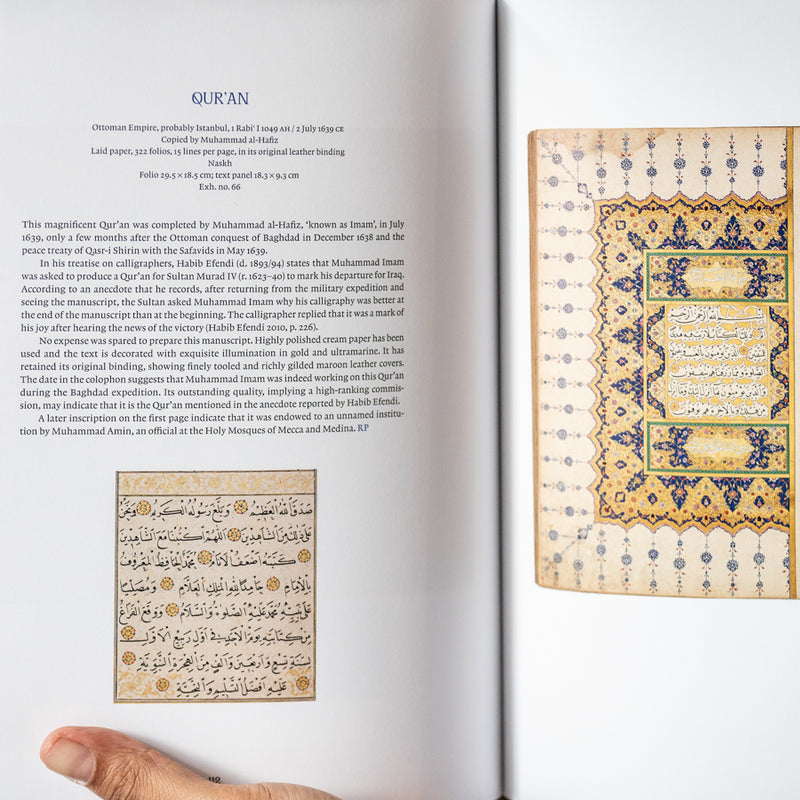 QUR'AN
Ottoman Empire, probably Istanbul, 1 Rabi' I 1049 AH / 2 July 1639 CE
Copied by Muhammad al-Hafiz
Laid paper, 322 folios, 15 lines per page, in its original leather binding
Naskh
Folio 29.5 × 18.5 cm; text panel 18.3 × 9.3 cm
Exh. no. 66
This magnificent Qur'an was completed by Muhammad al-Hafiz, 'known as Imam', in July
1639, only a few months after the Ottoman conquest of Baghdad in December 1638 and the
peace treaty of Qasr-i Shirin with the Safavids in May 1639.
In his treatise on calligraphers, Habib Efendi (d. 1893/94) states that Muhammad Imam
was asked to produce a Qur'an for Sultan Murad IV (r. 1623–40) to mark his departure for Iraq.
According to an anecdote that he records, after returning from the military expedition and
seeing the manuscript, the Sultan asked Muhammad Imam why his calligraphy was better at
the end of the manuscript than at the beginning. The calligrapher replied that it was a mark of
his joy after hearing the news of the victory (Habib Efendi 2010, p. 226).
No expense was spared to prepare this manuscript. Highly polished cream paper has been
used and the text is decorated with exquisite illumination in gold and ultramarine. It has
retained its original binding, showing finely tooled and richly gilded maroon leather covers.
The date in the colophon suggests that Muhammad Imam was indeed working on this Qur'an
during the Baghdad expedition. Its outstanding quality, implying a high-ranking commis-
sion, may indicate that it is the Qur'an mentioned in the anecdote reported by Habib Efendi.
A later inscription on the first page indicate that it was endowed to an unnamed institu-
tion by Muhammad Amin, an official at the Holy Mosques of Mecca and Medina. RP
صدق الله العظيم وبلغ رسوله الكريم ونحن
على ذلك من الشاهدين اللهم اكتبنا مع الشاهدين
كتبه اضعف الانام محمد الحافظ المعروف
بالامام حامدا لله الملك العلام ومصليا
على نبيه محمد عليه الصلوة والسلام ووقع الفراغ
من كتابته يوم الاحد في اول ربيع الاول
لسنة تسع واربعين والف من الهجرة النبوية
عليه افضل التسليم والتحية